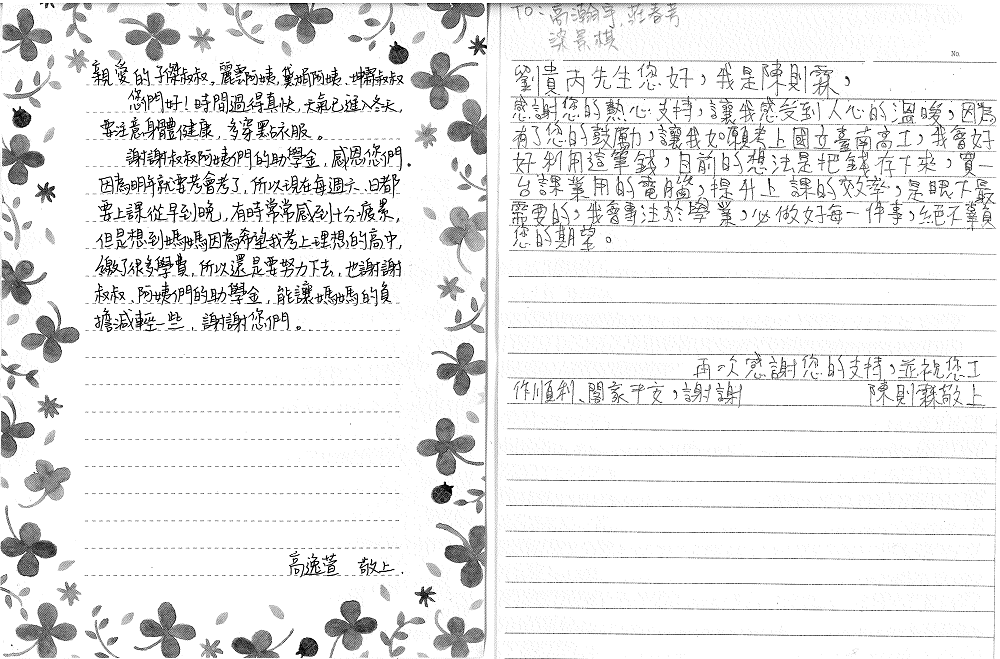 親愛的子傑叔叔,麗雲阿姨,黛娟阿姨、坤霖叔叔
您們好!時間過得真快,天氣已進入冬天,
要注意身體健康,多穿點衣服。
謝謝叔叔阿姨們的助學金,感恩您們.
因為明年就要考會考了,所以現在每週六、日都
要上課從早到晚,有時常常感到十分疲累,
但是想到媽媽因為希望我考上理想的高中,
繳了很多學費,所以還是要努力下去,也謝謝
叔叔、阿姨們的助學金,能讓媽媽的負
擔減輕一些,謝謝您們。
高逸萱 敬上.
TO:高瀚宇,莊春芳
梁景棋
No.
劉貴丙先生您好,我是陳則霖,
感謝您的熱心支持,讓我感受到人心的溫暖,因為
有了您的鼓勵,讓我如願考上國立臺南高工,我會好
好利用這筆錢,目前的想法是把錢存下來,買一
台課業用的電腦,提升上課的效率,是眼下最
需要的,我會專注於學業,必做好每一件事,絕不辜負
您的期望。
再次感謝您的支持,並祝您工
作順利、闔家平安,謝謝 陳則霖敬上